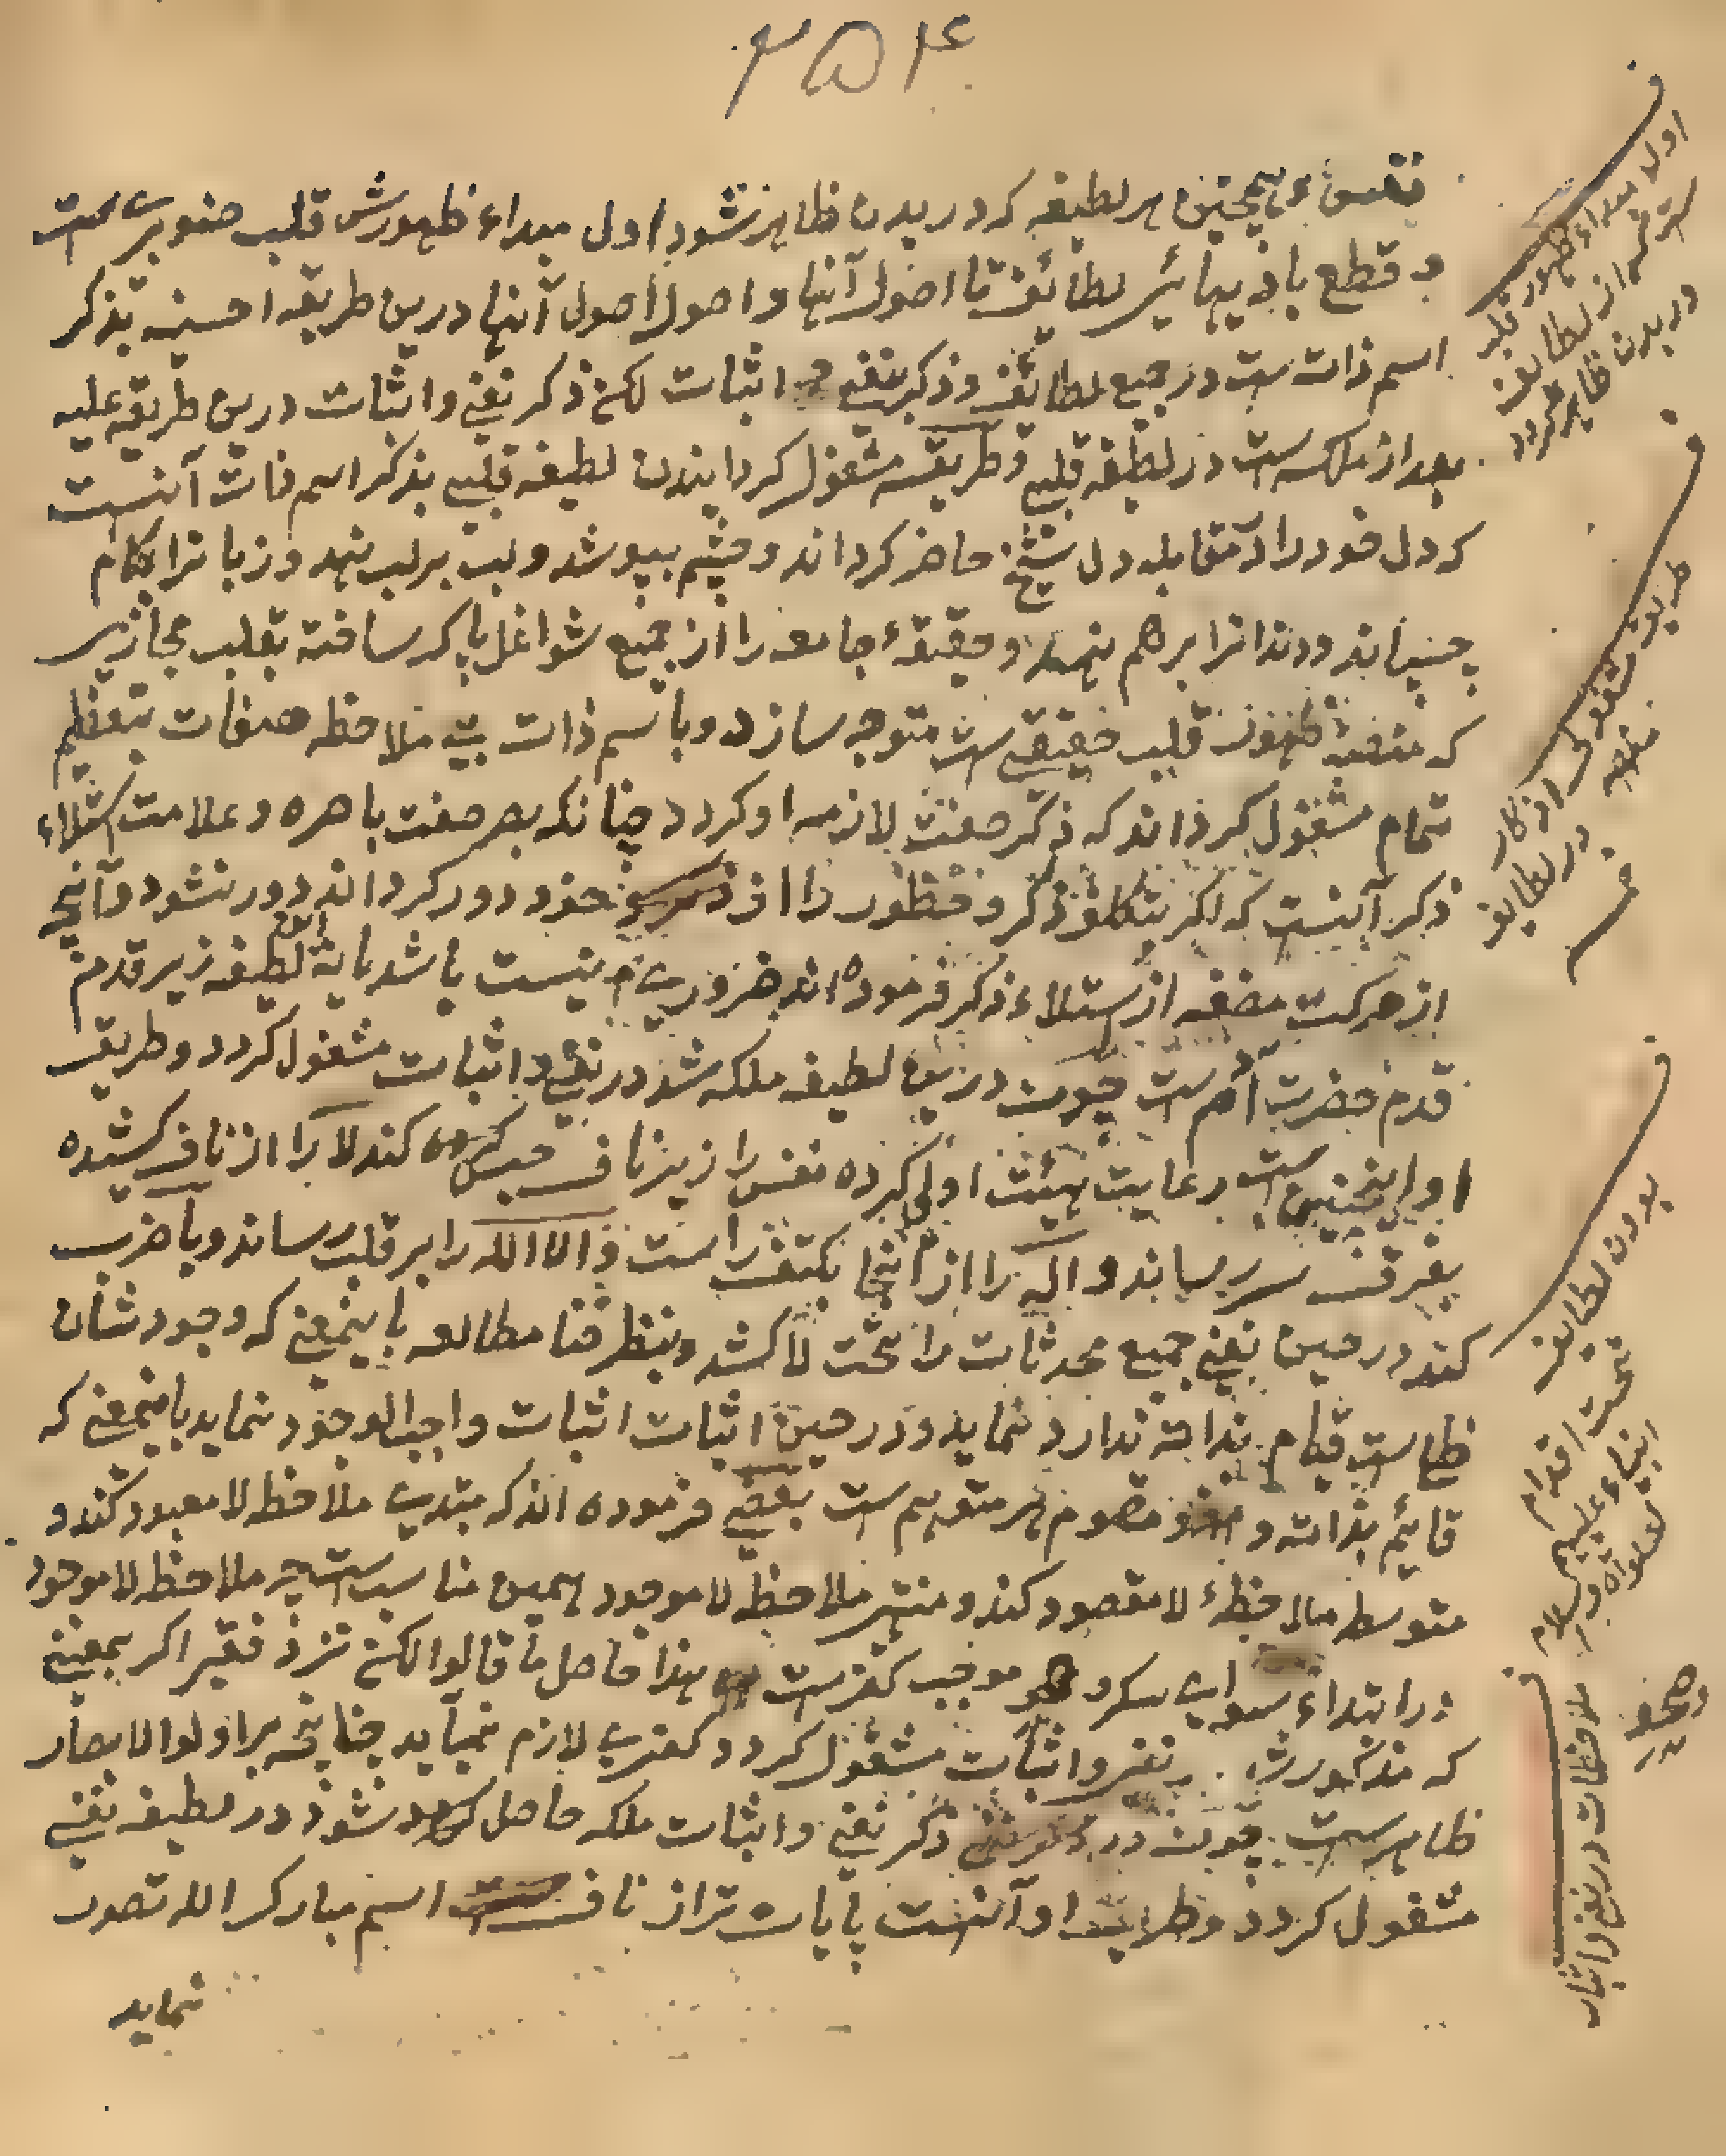 نفس و همچنین هر لطیفه که در بدن ظاهر شود اول مبداء ظهورش قلب صنوبری ست
و قطع بادیهائے لطائف تا اصول آنها و اصول اصول آنها درین طریقه احسنیه بذکر
اسم ذات ست در جمیع لطائف و ذکر نفی و اثبات لکن ذکر نفی و اثبات درین طریقه علیه
بعد از ملکه ست در لطیفه قلبی و طریقه مشغول کردانیدن لطیفه قلبی بذکر اسم ذات آنست
که دل خود را در مقابله دل شیخ حاضر کرداند و چشم بپوشد و لب بر لب نهد و زبانرا بکام
چسپاند و دندانرا برهم نهد و حقیقهٔ جامعه را از جمیع شواغل پاک ساخته بقلب مجازی
که قلب حقیقی ست متوجه سازد و باسم ذات بی ملاحظه صفات بتعظیم
تمام مشغول کرداند که ذکر صفت لازمه او کردد چنانکه بصر صفت باصره و علامت استلاء
ذکر آنست که اکر بتکلف ذکر و خطور را از خود دور کرداند دور نشود و آنچه
از حرکت مضغه از استلاء ذکر فرموده اند ضروری نیست باشد یا نه این لطیفه زیر قدم
قدم حضرت آدم ست چون درین لطیفه ملکه شد در نفی و اثبات مشغول کردد و طریق
او اینچنین ست برعایت هیئت اولی کرده نفس را زیر ناف حبس کند لا را از ناف کشیده
بفرق سر رساند و اله را از آنجا بکتف راست و الا الله را بر قلب رساند و با ضرب
کند در حین نفی جمیع محدثات را تحت لا کشد و بنظر فنا مطالعه باینمعنی که وجود شان
ظلی ست قیام بذاته ندارد نماید و در حین اثبات اثبات واجب الوجود نماید باینمعنی که
قایم بذاته و هر متوهم ست بعضی فرموده اند که مبتدی ملاحظه لا معبود کند و
متوسط ملاحظهٔ لا مقصود کند و منتهی ملاحظه لا موجود همین مناسب ست چه ملاحظه لا موجود
در ابتداء سوای سکر و محو موجب کفرست هذا حاصل ما قالوا لکن نزد فقیر اکر بمعنی
که مذکور شد بنفی و اثبات مشغول کردد کفری لازم نمیاید چنانچه بر اولو الابصار
ظاهر ست چون در ذکر نفی و اثبات ملکه حاصل شود در لطیفه نفسی
مشغول کردد و طریقه او آنست پایان تر از ناف اسم مبارک الله تصور
نماید
اول مبداء ظهور قلب
است هر از لطایف
در بدن ظاهر کردد
طریق مشغولی اذکار
در لطایف
خمسه
بودن لطایف
تحت اقدام
انبیاء علیهم
الصلواة و السلام
ملاحظات در نفی و اثبات